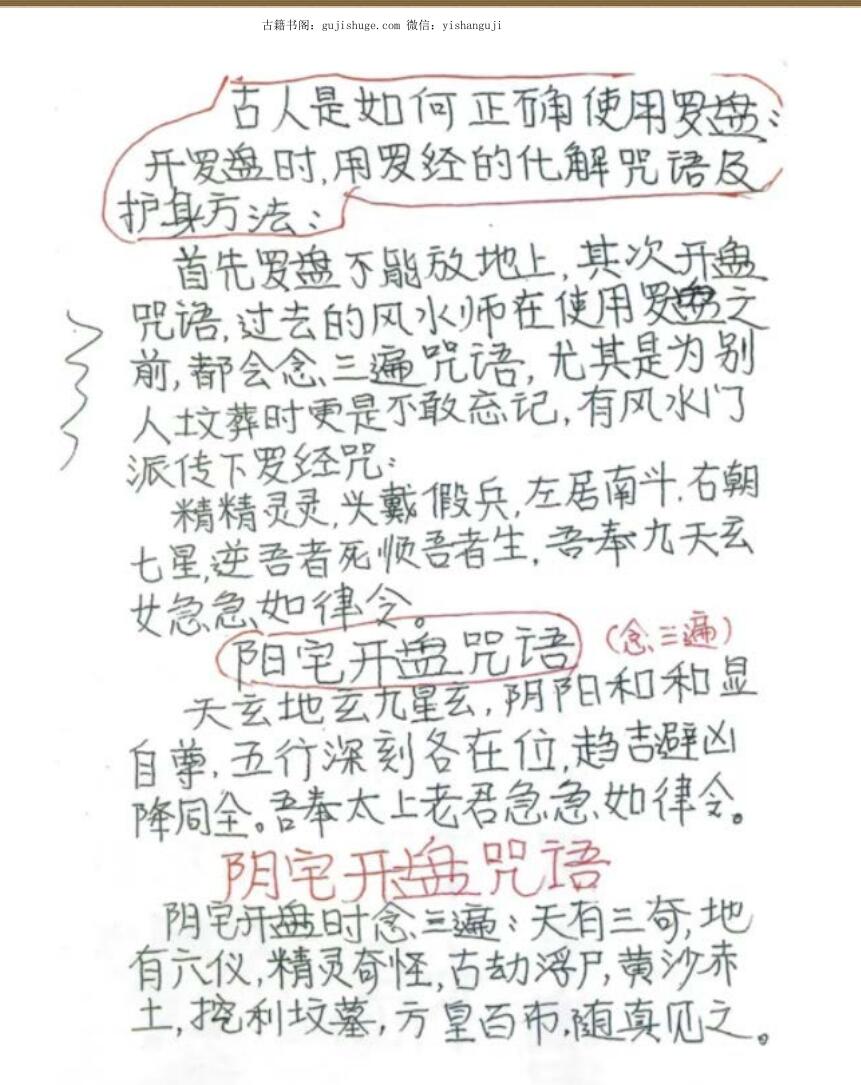 古籍书阁：gujishuge.com 微信：yishanguji
古人是如何正确使用罗盘：
开罗盘时，用罗经的化解咒语及
护身方法：
首先罗盘不能放地上，其次开盘
咒语，过去的风水师在使用罗盘之
前，都会念三遍咒语，尤其是为别
人坟葬时更是不敢忘记，有风水门
派传下罗经咒：
精精灵灵，头戴假兵，左居南斗，右朝
七星，逆吾者死顺吾者生，吾奉九天玄
女急急如律令。
阳宅开盘咒语（念三遍）
天玄地玄九星玄，阴阳和和显
自尊，五行深刻各在位，趋吉避凶
降同全。吾奉太上老君急急如律令。
阴宅开盘咒语
阴宅开盘时念三遍：天有三奇，地
有六仪，精灵奇怪，古劫浮尸，黄沙赤
土，挖利坟墓，方皇百布，随真见之。